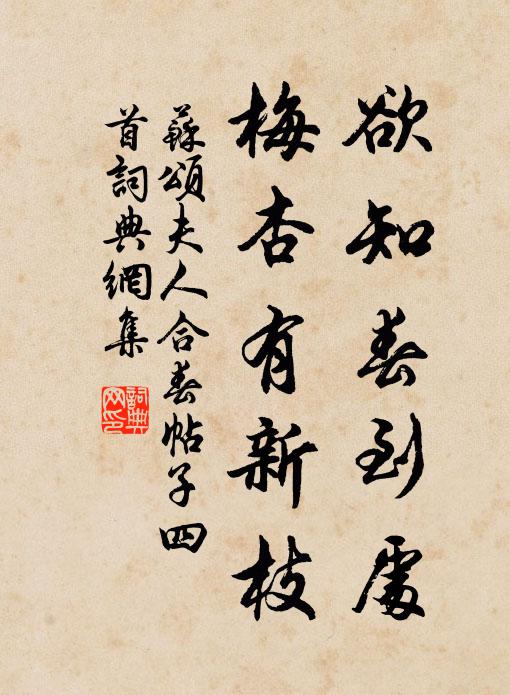 欲知春到處
梅杏有新枝
蘇頌夫人合春帖子四
首詞典網集
詞典
网印